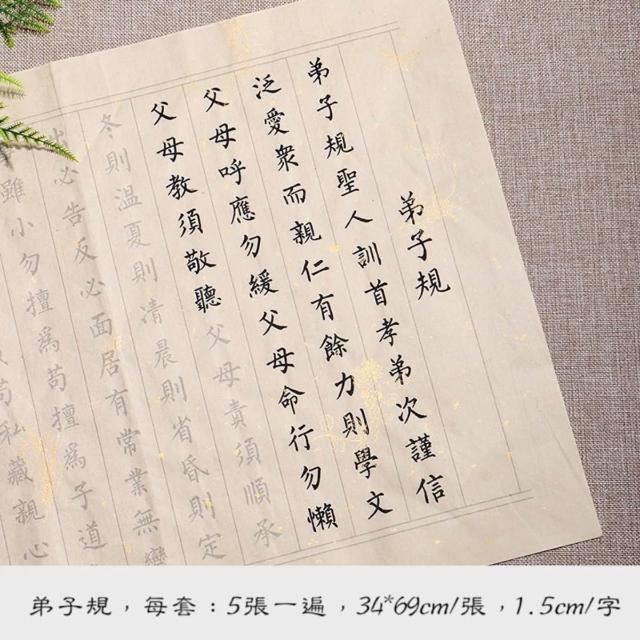 弟子規
弟子規聖人訓首孝弟次謹信
泛愛衆而親仁有餘力則學文
父母呼應勿緩父母命行勿懶
父母教須敬聽父母責須順承
冬則温夏則清晨則省昏則定
出必告反必面居有常業無變
雖小勿擅爲苟擅爲子道
苟私藏親心
弟子規，每套：5張一遍，34*69cm/張，1.5cm/字